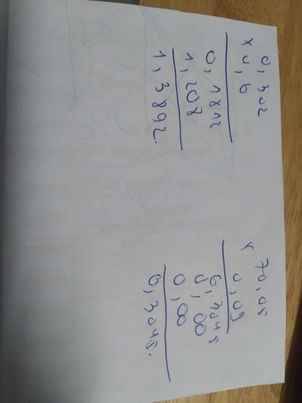 0,302
x 4,6
0,1812
1,208
1,3892.
70,05
x 0,09
6,3045
0,00
0,00
6,3045.